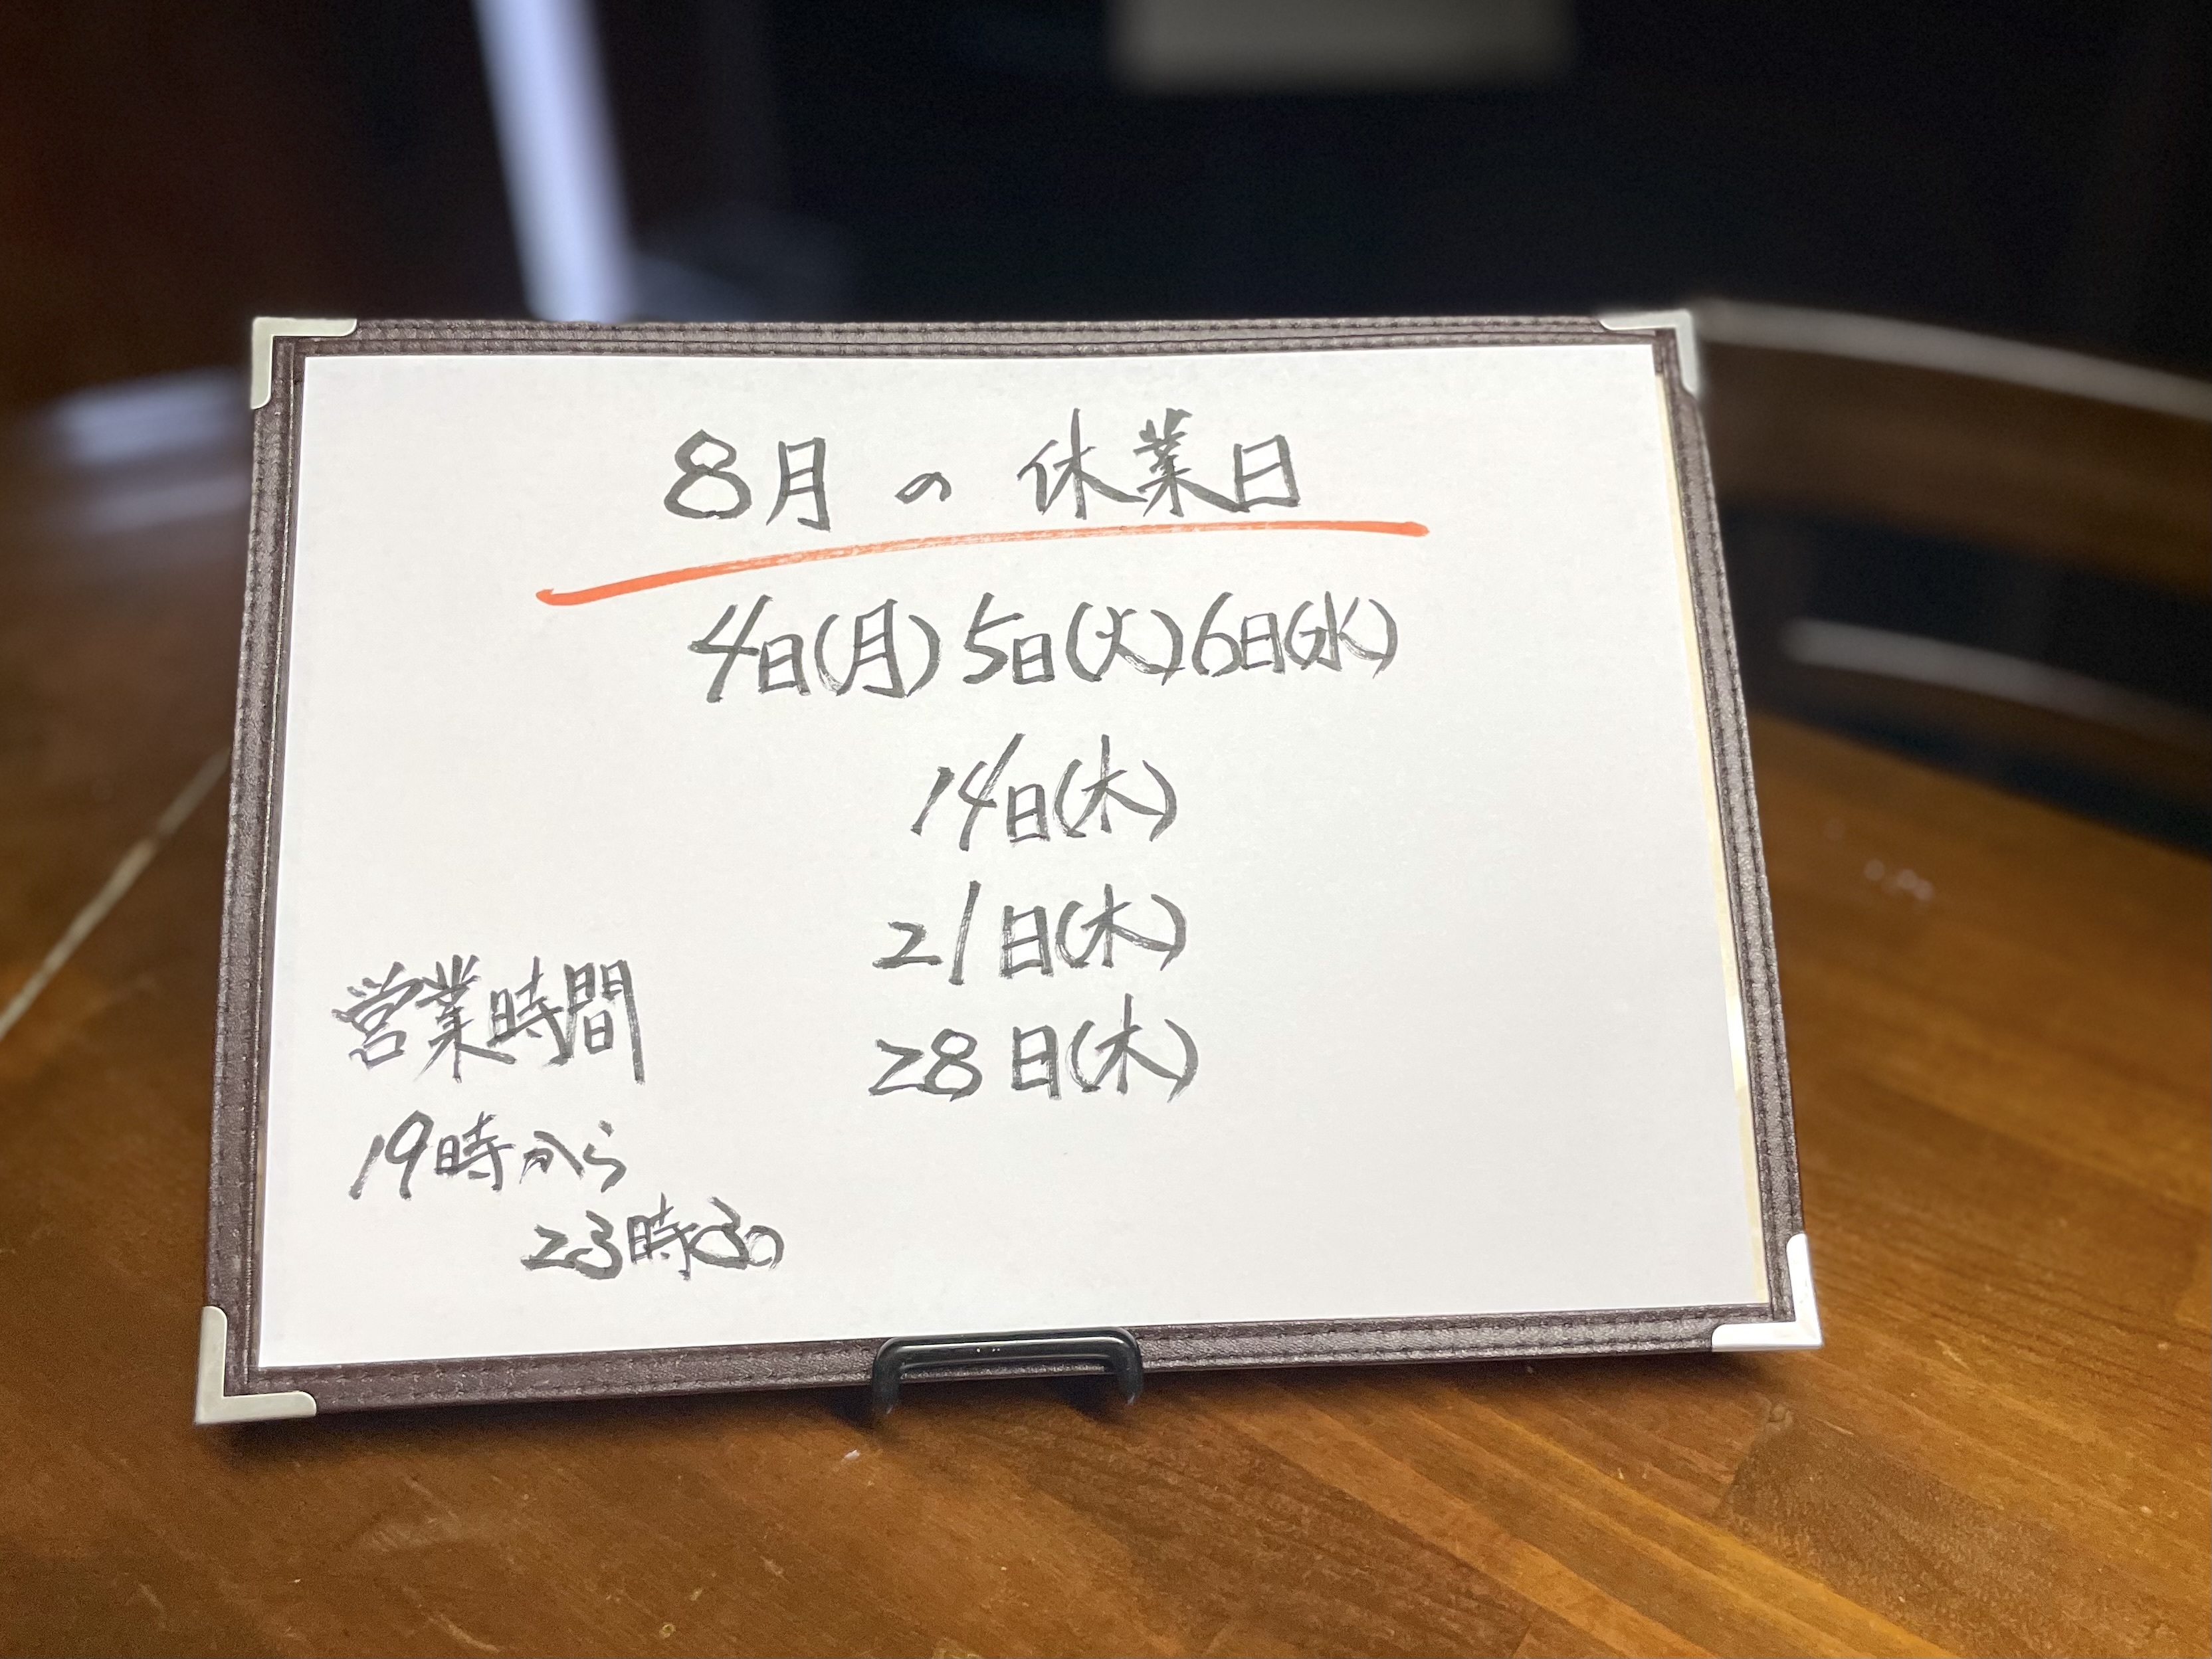 8月の休業日
4日(月)5日(火)6日(水)
14日(木)
21日(木)
28日(木)
営業時間
19時から
23時30